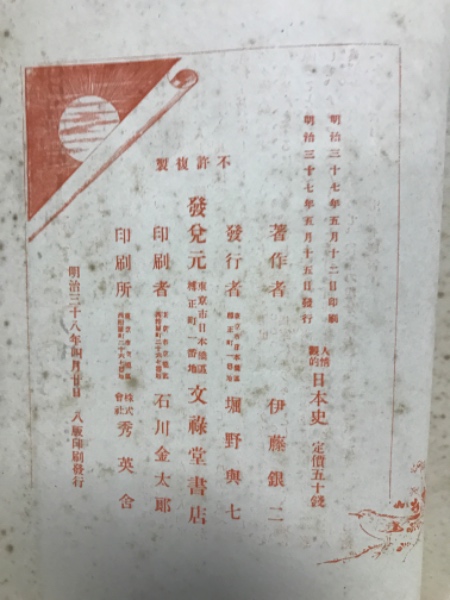 明治三十七年五月十二日印刷
明治三十七年五月十五日發行
人情的 日本史 定價五十錢
不許複製
著作者 伊藤銀二
發行者 堀野與七
發兌元 東京市日本橋區 文祿堂書店
印刷者 石川金太郎
印刷所 株式會社 秀英舍
明治三十八年四月廿日 八版印刷發行